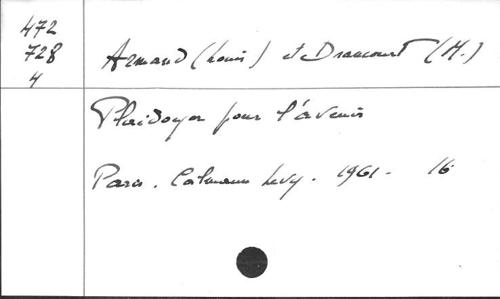 472
728
4
Armand (Louis) et Drancourt (M.)
Plaidoyer pour l'avenir
Paris. Calmann Levy. 1961 - 16